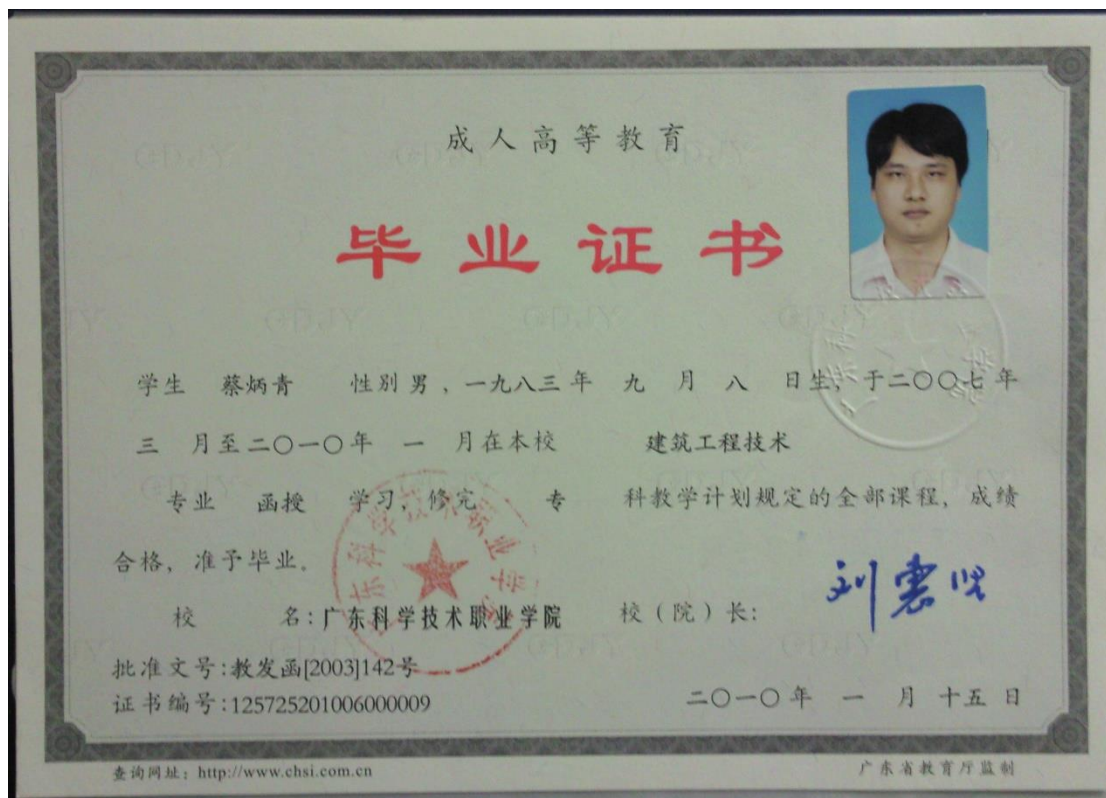 成人高等教育
毕业证书
学生 蔡炳青 性别 男 , 一九八三 年 九 月 八 日生, 于二〇〇七 年
三 月至二〇一〇年 一 月在本校 建筑工程技术
专业 函授 学习, 修完 专 科教学计划规定的全部课程, 成绩
合格, 准予毕业。
校 名: 广东科学技术职业学院 校（院）长:
批准文号:教发函[2003]142号
证书编号:125725201006000009 二〇一〇年 一 月 十五 日
查询网址: http://www.chsi.com.cn 广东省教育厅监制